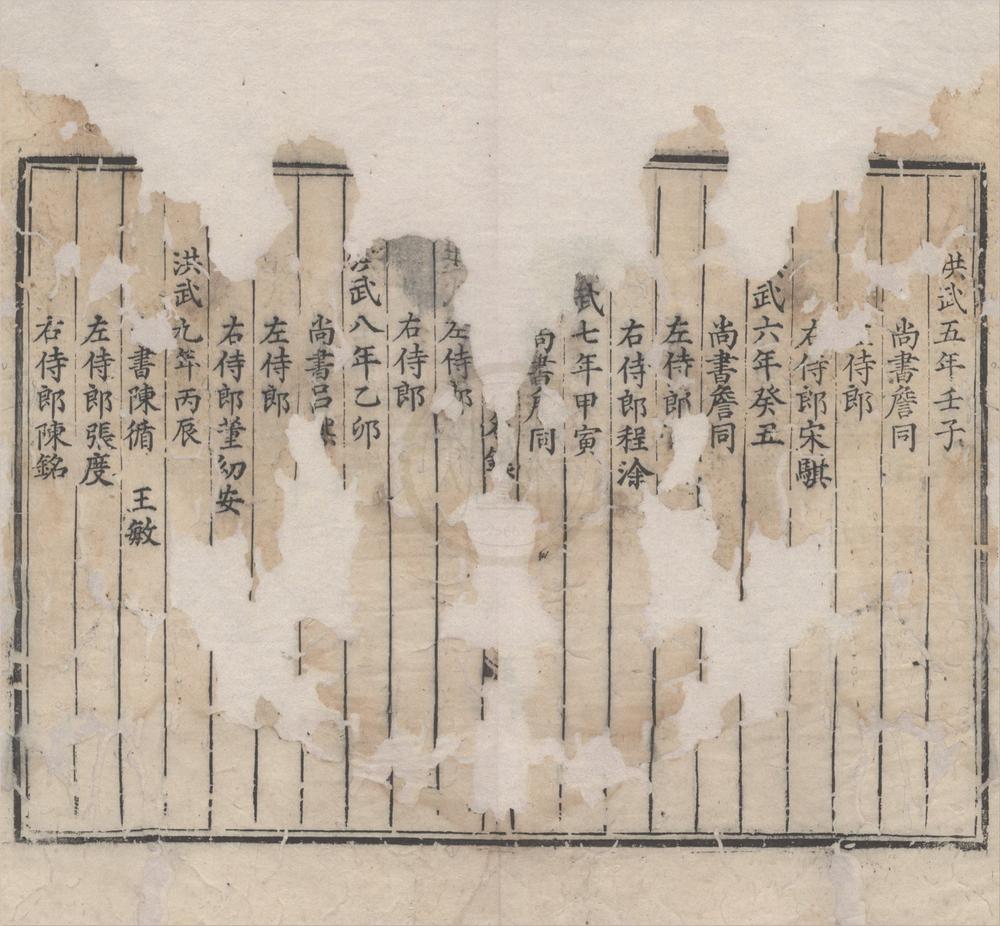 洪武五年壬子
尚書詹同
侍郎
右侍郎宋騏
武六年癸丑
尚書詹同
左侍郎
右侍郎程塗
武七年甲寅
尚書詹同
左侍郎
右侍郎
洪武八年乙卯
尚書呂
左侍郎
右侍郎董幼安
洪武九年丙辰
書陳循 王敏
左侍郎張度
右侍郎陳銘